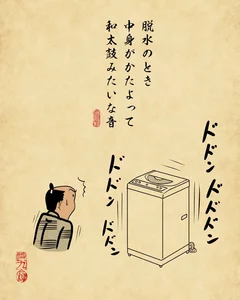 脱水のとき
中身がかたよって
和太鼓みたいな音
ドドン
ドドドン
ドドン
ドドン